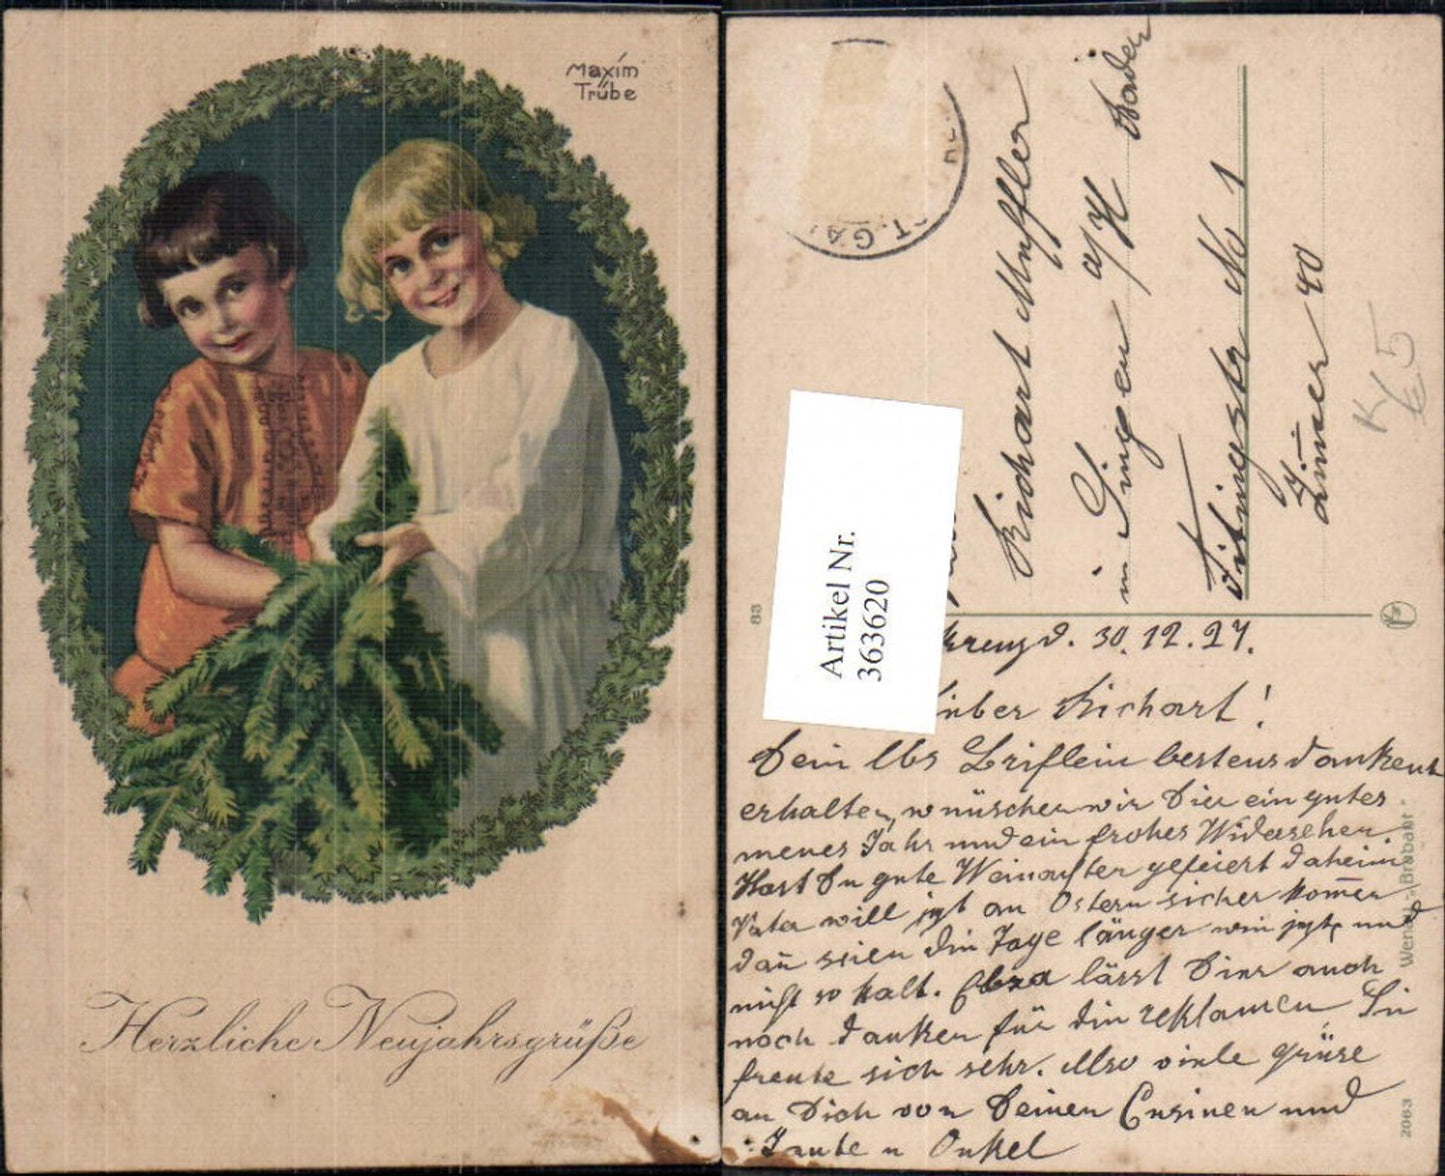 Maxim
Trübe
Herzliche Neujahrsgrüße
T. GA
Richart Muffler
in Singen a/H Baden
Tibingstr No 1
Zimmer 40
K
5
Artikel Nr.
363620
83
kreuzd. 30.12.27.
lieber Richart!
Dein lbs Briflein bestens dankent
erhalten, wünschen wir Dir ein gutes
neues Jahr und ein frohes Widersehen.
Hast Du gute Weinachten gefeiert daheim
Vater will jezt an Ostern sicher kom̅en
dan̅ seien die Tage länger wie jezt, und
nicht so kalt. lässt Dir auch
noch danken für die reklamen Sie
freute sich sehr. Also viele grüse
an Dich von Deinen Cusinen und
Tante u Onkel
Wenau - Brabant
2063